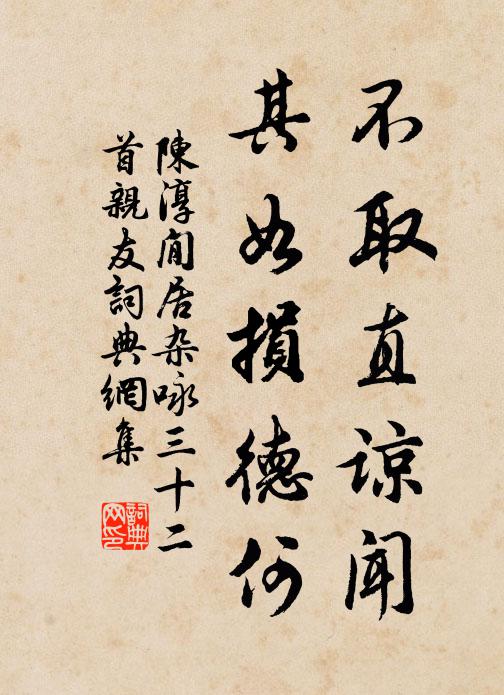 不取直谅闻
其如損德何
陳淳閒居杂咏三十二
首親友詞典網集
詞典
网印